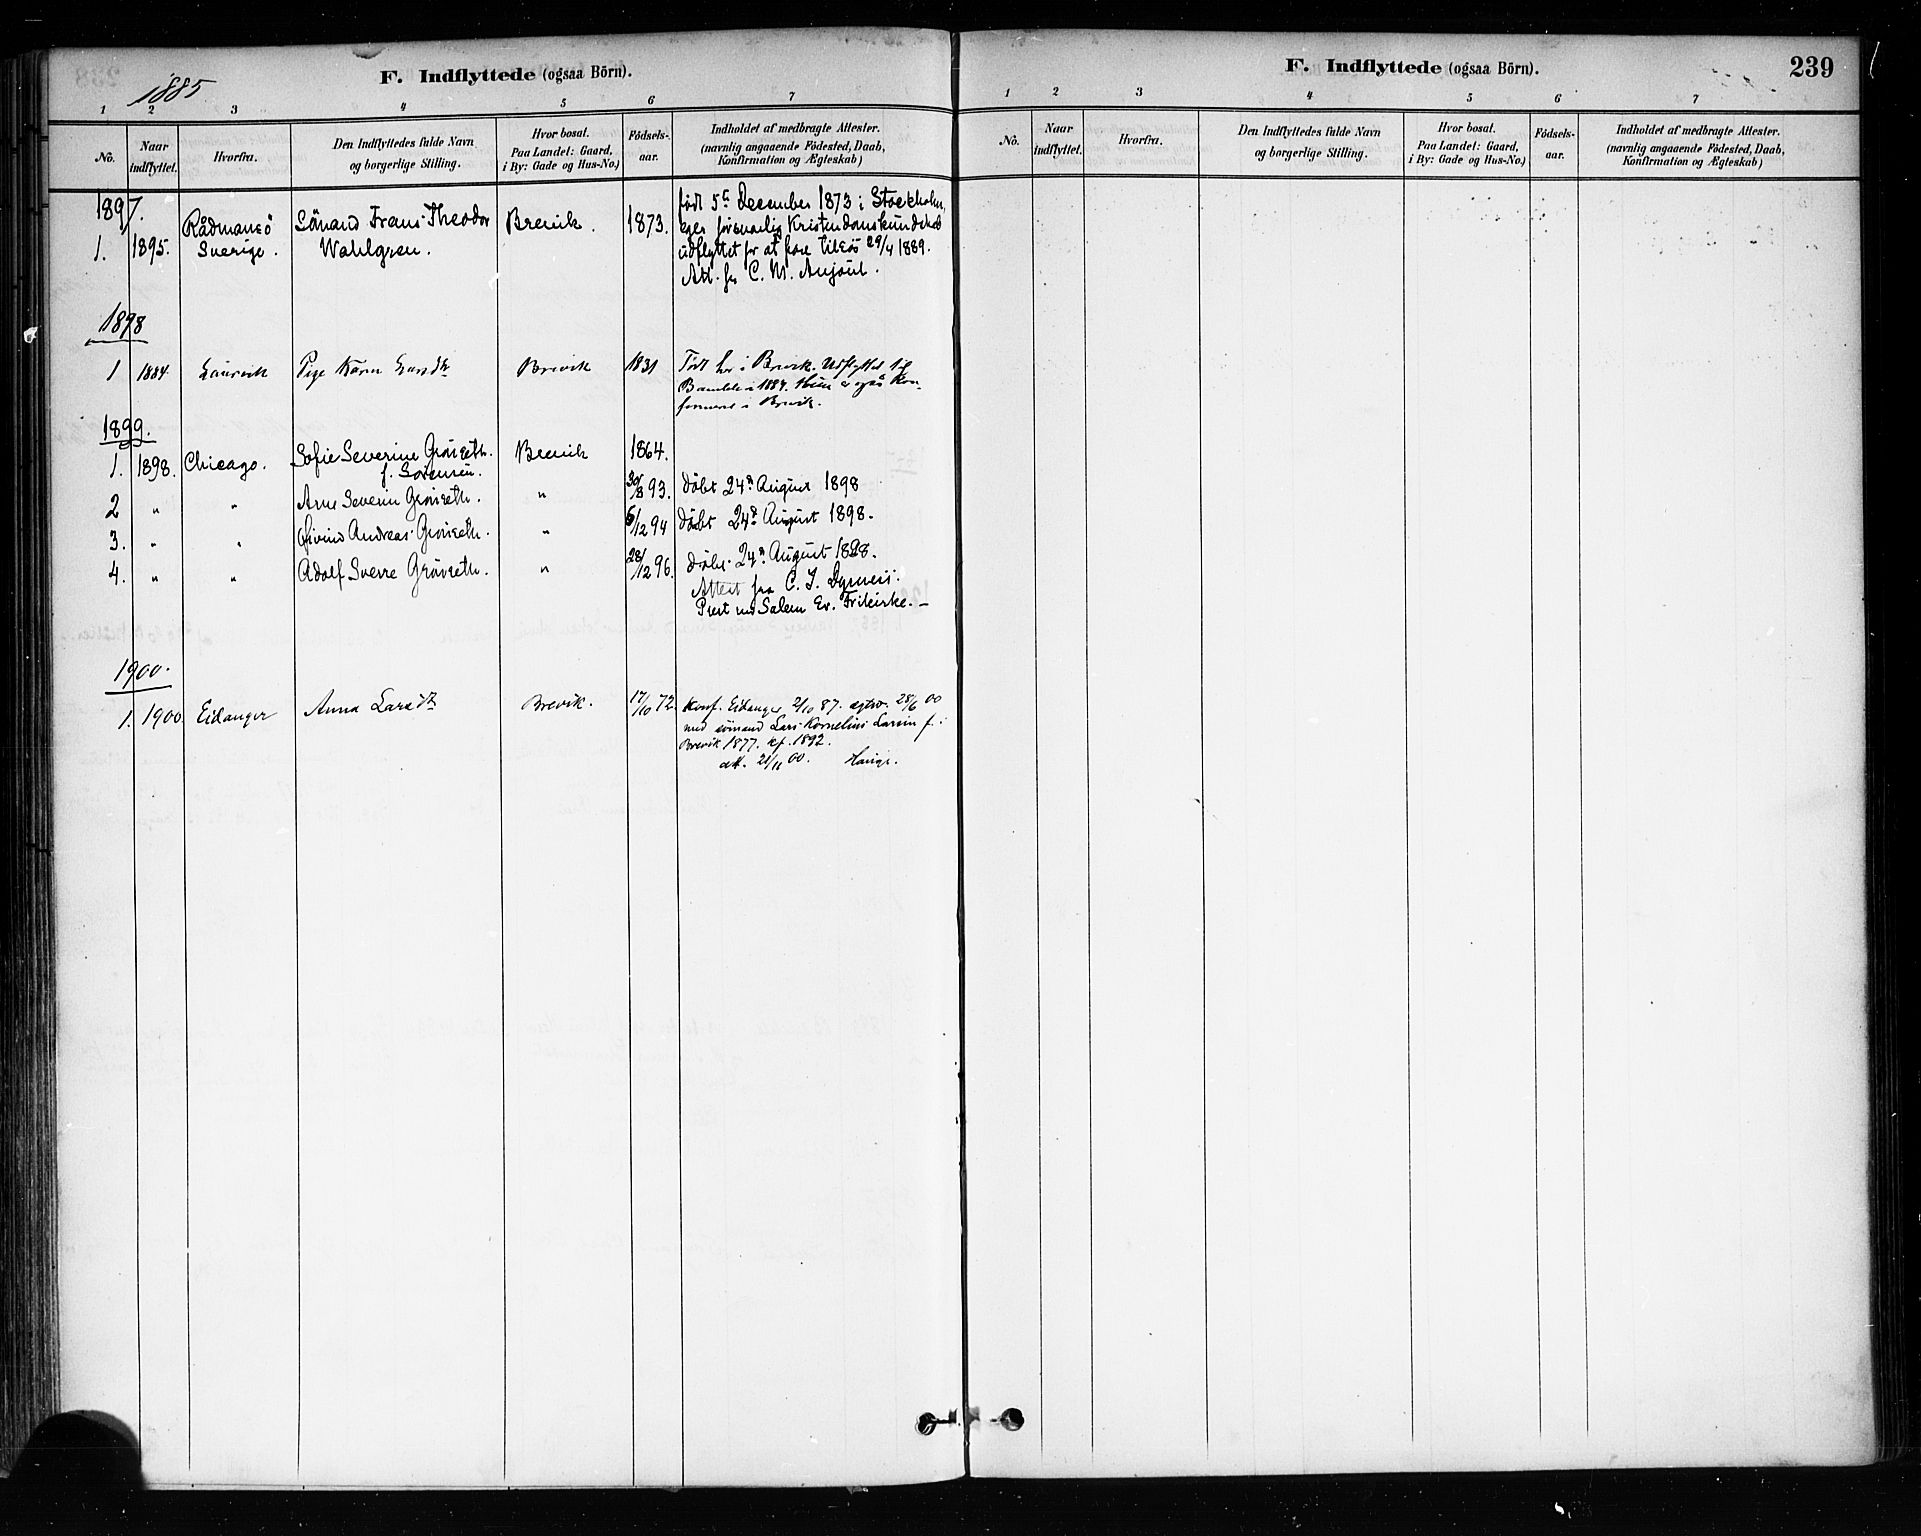 F. Indflyttede (ogsaa Börn).
1885
1 2 3 4 5 6 7
No.
Naar indflyttet.
Hvorfra.
Den Indflyttedes fulde Navn
og borgerlige Stilling.
Hvor bosat.
Paa Landet: Gaard,
i By: Gade og Hus-No.)
Födsels-
aar.
Indholdet af medbragte Attester.
(navnlig angaaende Födested, Daab,
Konfirmation og Ægteskab)
1897.
1. 1895. Rådmansö
Sverige.
Sömand Frans Theodor
Wahlgren.
Brevik. 1873.
født 5te December 1873 i Stockholm,
eger forsvarlig Kristendomskundskab
udflyttet for at fare tilsös 29/4 1889.
Att. fra C. M.
1898
1 1884. Laurvik Pige Karen Brevik 1831
Født her i Brevik. Udflyttet til
Bamble i 1884. Hun er også Kon-
firmeret i Brevik.
1899.
1. 1898. Chicago. Sofie Severine
f. Sørensen. Brevik 1864.
2 " " Arne Severin " 30/8 93. døbt 24de August 1898
3. " " Øivind Andreas " 6/12 94 døbt 24de August 1898.
4. " " Adolf Sverre " 28/12 96. døbt 24de August 1898.
Attest fra C. J.
Prest ved Salem Ev. Frikirke. –
1900.
1. 1900 Eidanger Anna Brevik. 17/10 72.
Konf. Eidanger 2/10 87. egtev. 28/6 00
med sömand Lars Kornelius Larsen f. i
Brevik 1877. kf. 1892.
att. 21/11 00.
F. Indflyttede (ogsaa Börn).
239
1 2 3 4 5 6 7
No.
Naar
indflyttet.
Hvorfra.
Den Indflyttedes fulde Navn
og borgerlige Stilling.
Hvor bosat.
Paa Landet: Gaard,
i By: Gade og Hus-No.)
Födsels-
aar.
Indholdet af medbragte Attester.
(navnlig angaaende Födested, Daab,
Konfirmation og Ægteskab)